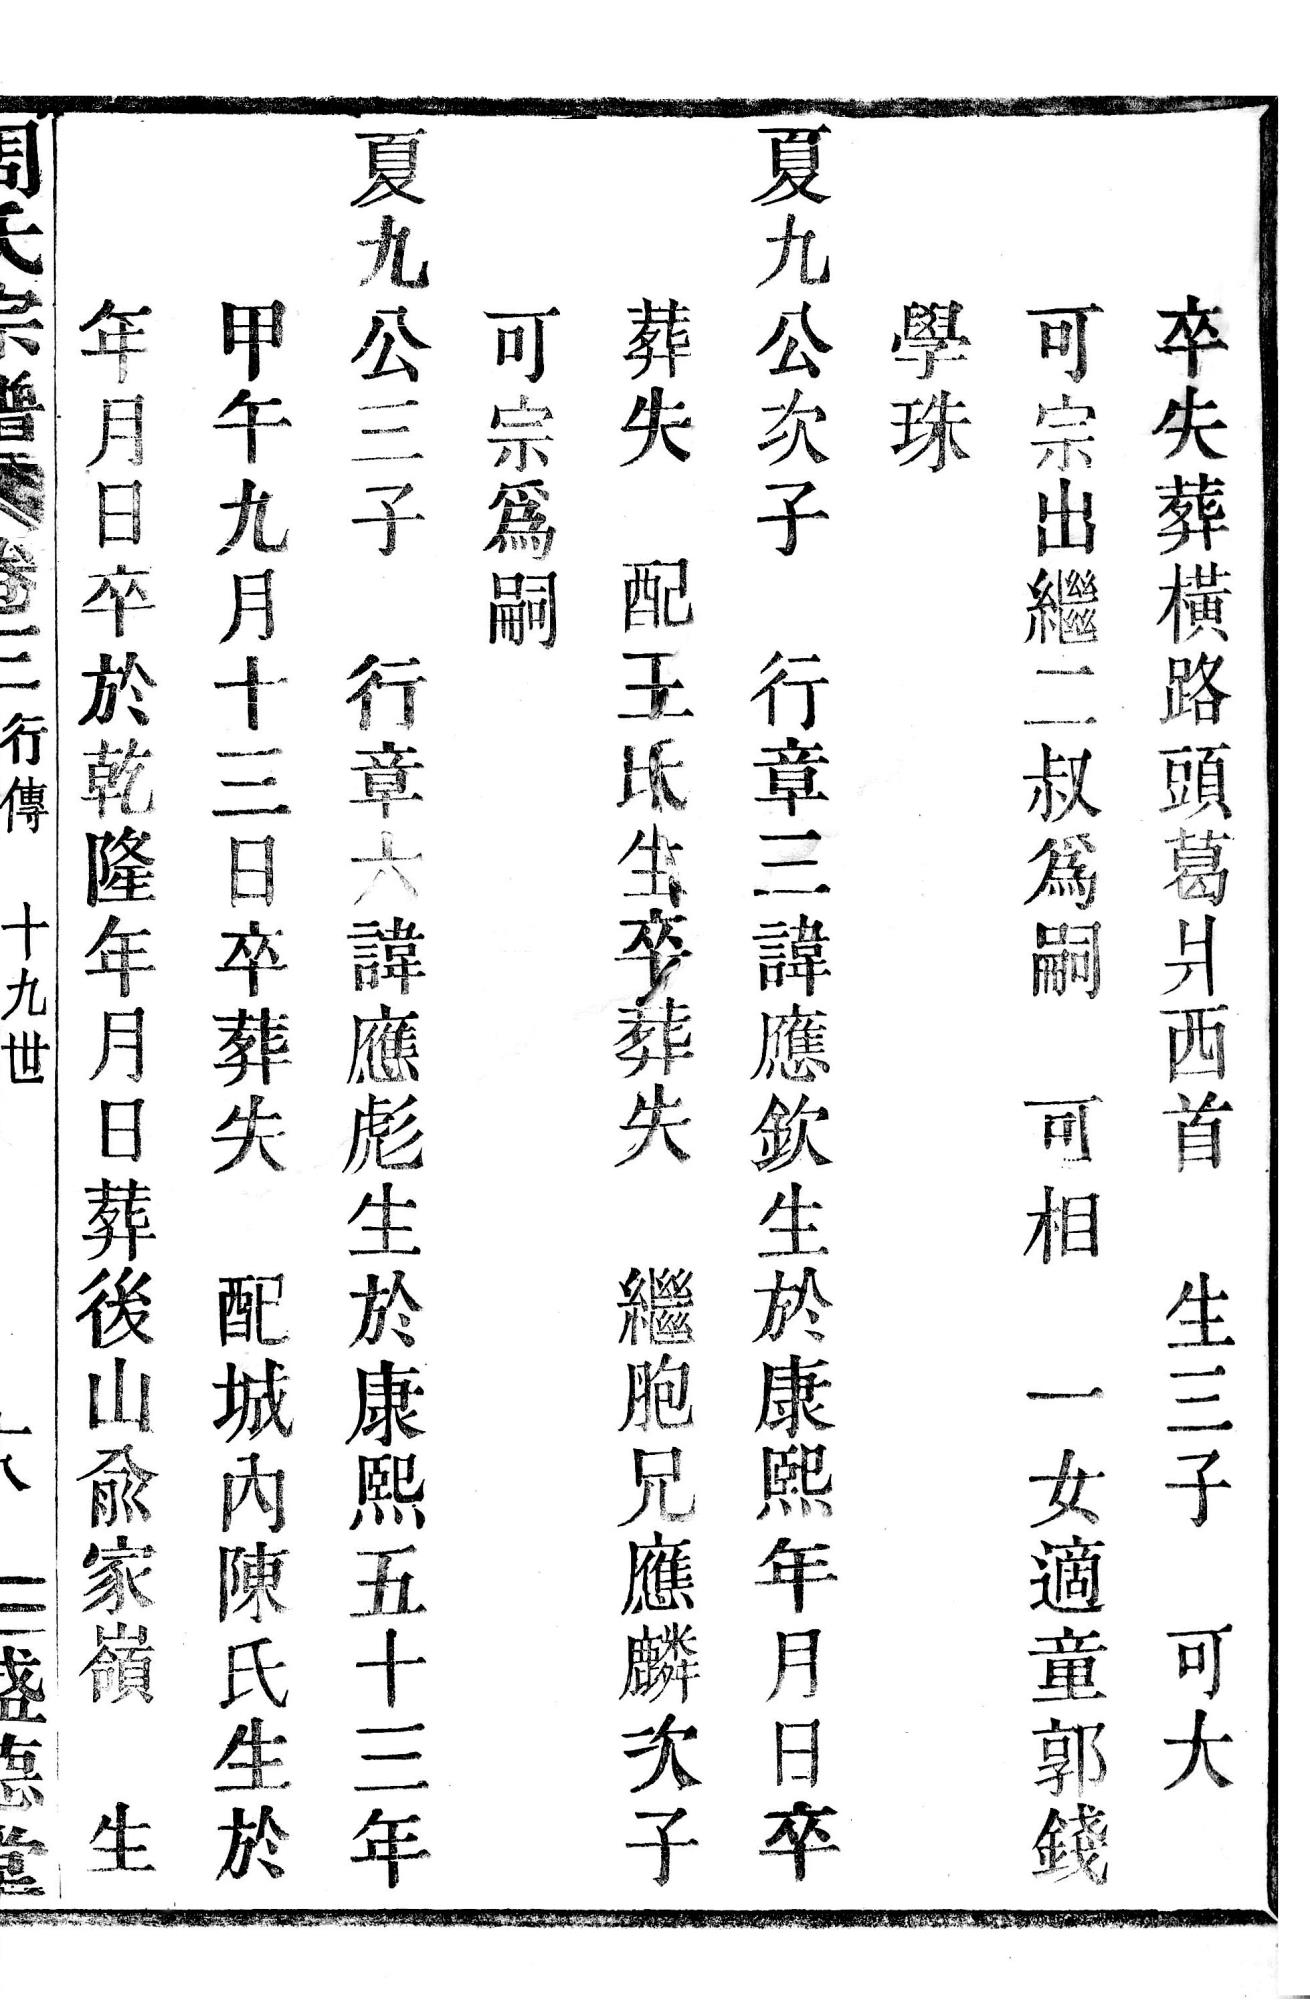 卒失葬橫路頭葛爿西首　生三子　可大
可宗出繼二叔爲嗣　可相　一女適童郭錢
學珠
夏九公次子　行章三諱應欽生於康熙年月日卒
葬失　配王氏生卒葬失　繼胞兄應麟次子
可宗爲嗣
夏九公三子　行章六諱應彪生於康熙五十三年
甲午九月十三日卒葬失　配城內陳氏生於
年月日卒於乾隆年月日葬後山俞家嶺　生
周氏宗譜　卷三　行傳　十九世　盛德堂